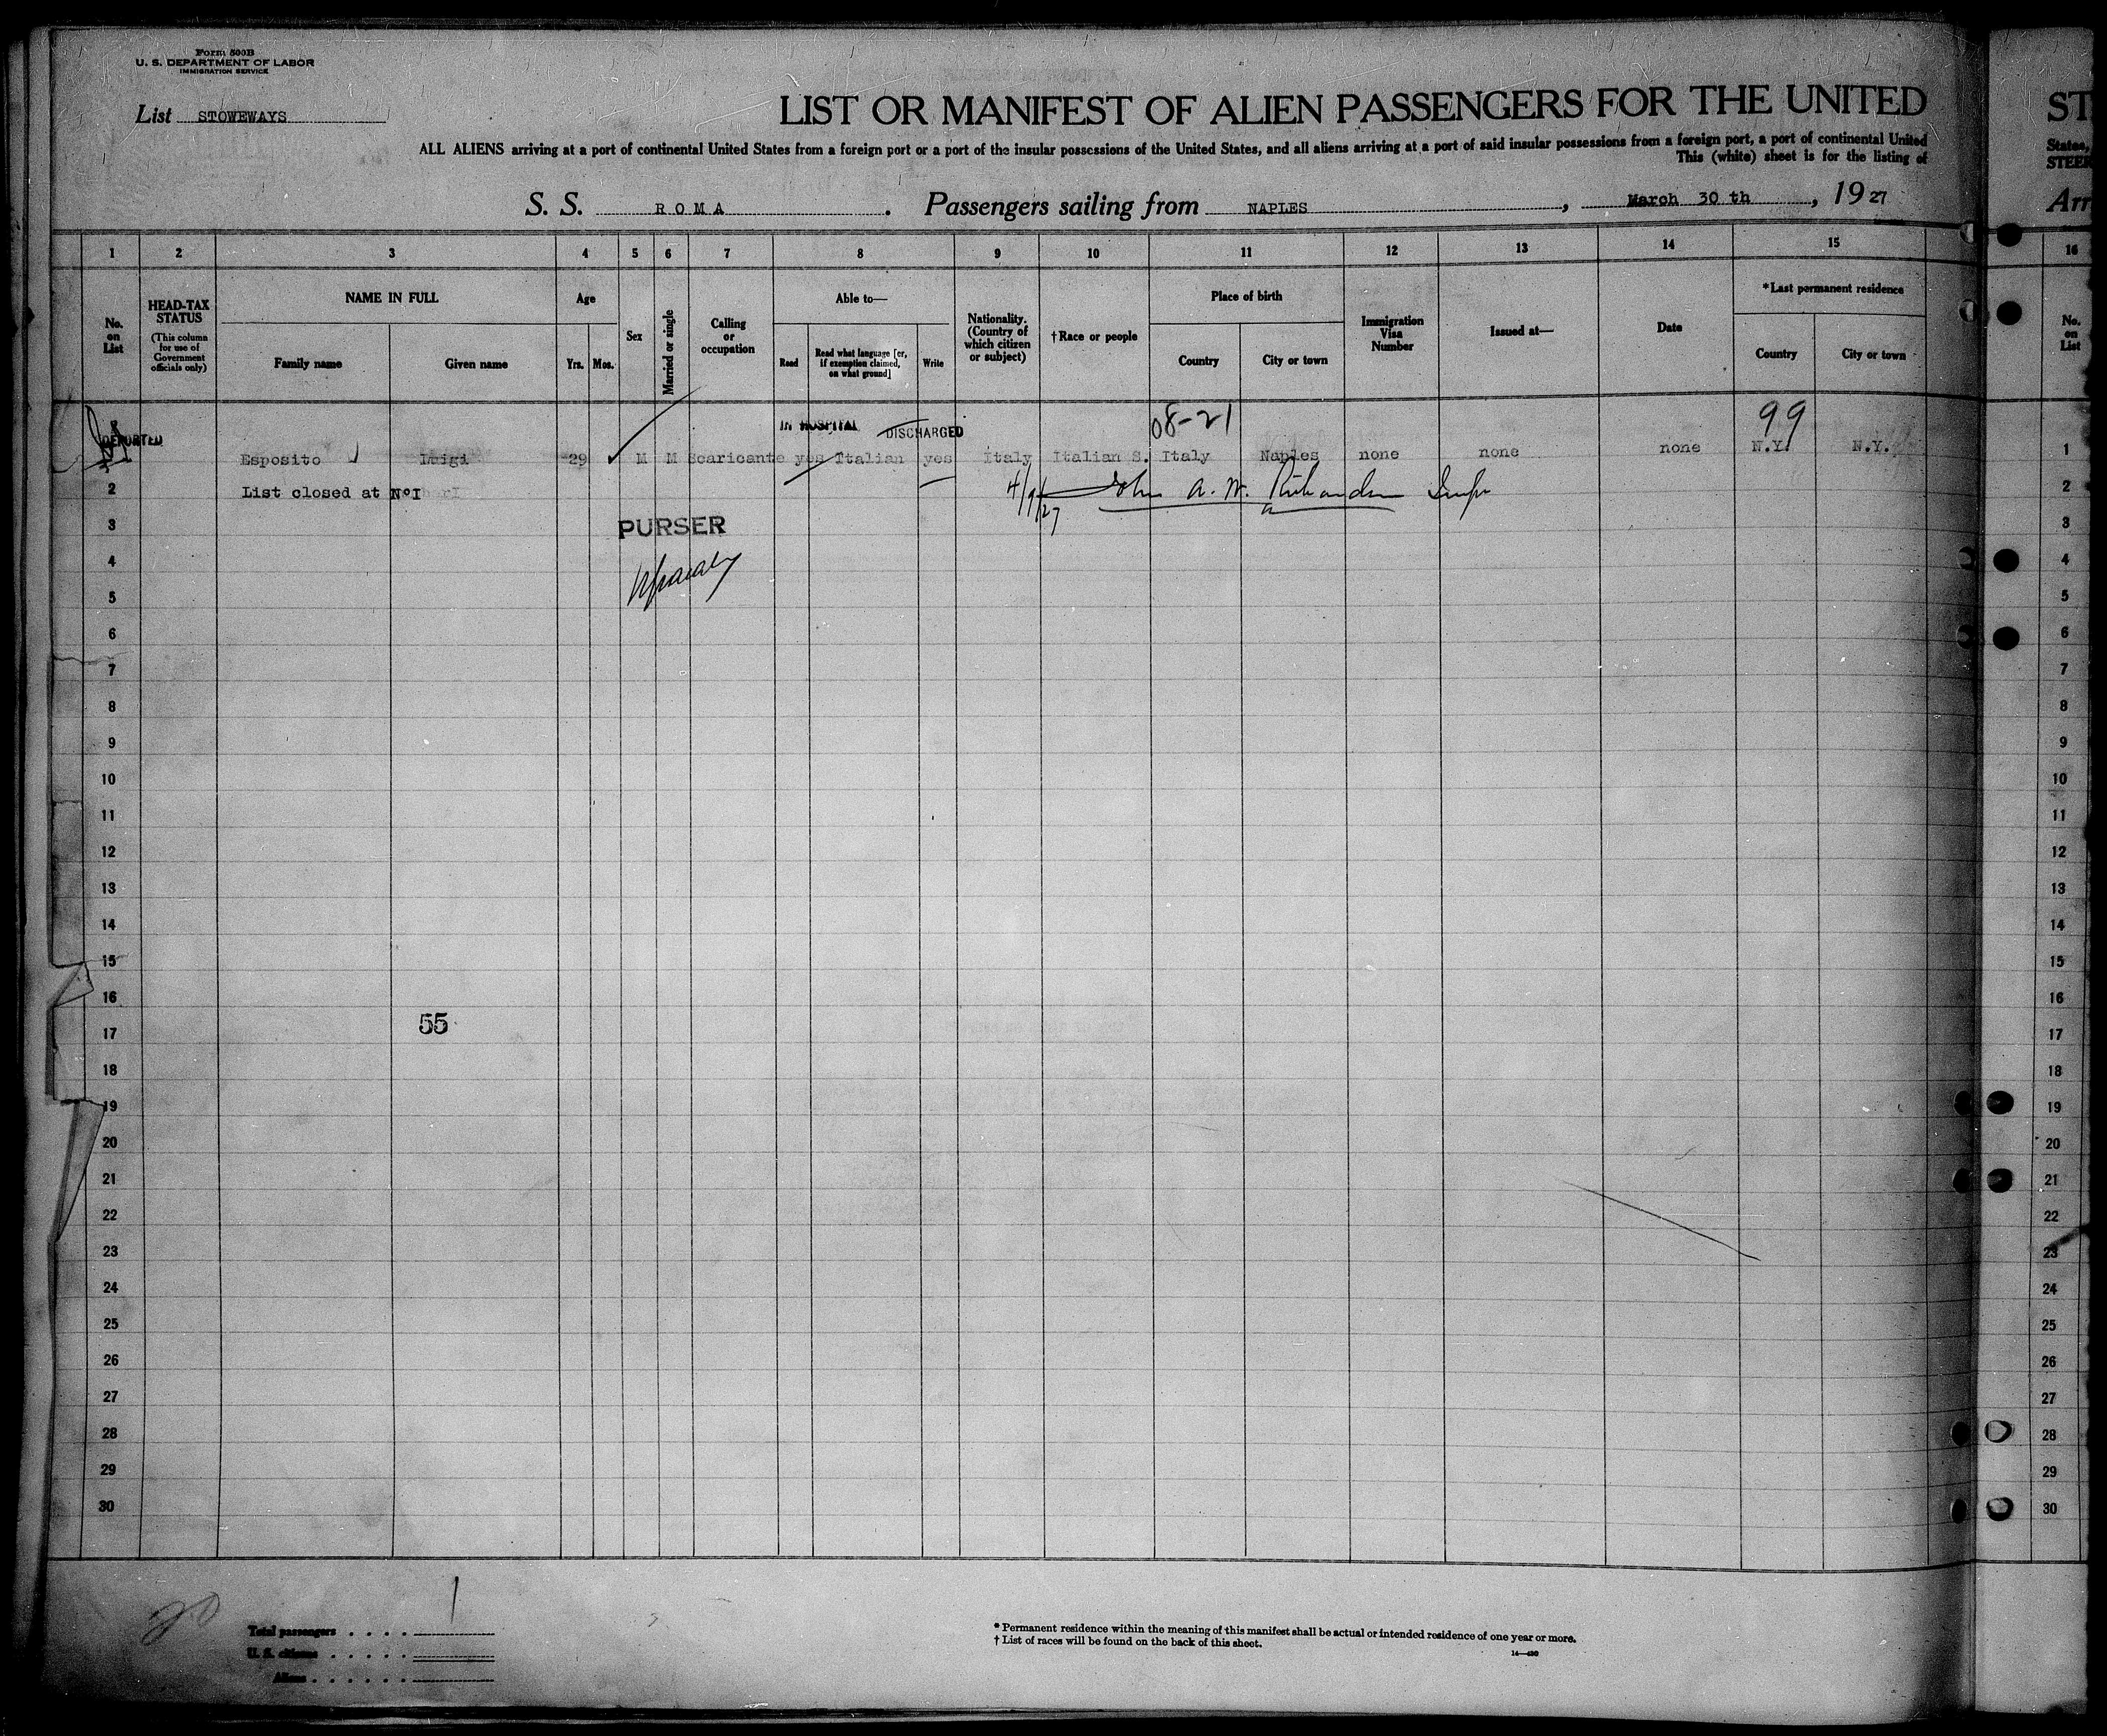 Form 500B
U. S. DEPARTMENT OF LABOR
IMMIGRATION SERVICE
List STOWEWAYS
LIST OR MANIFEST OF ALIEN PASSENGERS FOR THE UNITED
ALL ALIENS arriving at a port of continental United States from a foreign port or a port of the insular possessions of the United States, and all aliens arriving at a port of said insular possessions from a foreign port, a port of continental United
This (white) sheet is for the listing of
S. S. ROMA. Passengers sailing from NAPLES, March 30 th, 1927
ST
States,
STEER
Arr
1 2 3 4 5 6 7 8 9 10 11 12 13 14 15 16
No. on List
HEAD-TAX STATUS
(This column for use of Government officials only)
NAME IN FULL
Family name Given name
Age
Yrs. Mos.
Sex
Married or single
Calling or occupation
Able to—
Read Read what language [or, if exemption claimed, on what ground] Write
Nationality. (Country of which citizen or subject)
†Race or people
Place of birth
Country City or town
Immigration Visa Number
Issued at—
Date
*Last permanent residence
Country City or town
No. on List
IN HOSPITAL DISCHARGED 08-21 99
DEPORTED
Esposito Luigi 29 M M Scaricante yes Italian yes Italy Italian S. Italy Naples none none none N.Y. N.Y. 1
2 List closed at NoI 4/9/27 John A. W. Richardson 2
3 PURSER 3
4 4
5 5
6 6
7 7
8 8
9 9
10 10
11 11
12 12
13 13
14 14
15 15
16 16
55
17 17
18 18
19 19
20 20
21 21
22 22
23 23
24 24
25 25
26 26
27 27
28 28
29 29
30 30
20
Total passengers . . . . 1
U. S. citizens . . . . .
Aliens . . . . . .
* Permanent residence within the meaning of this manifest shall be actual or intended residence of one year or more.
† List of races will be found on the back of this sheet.
14—430